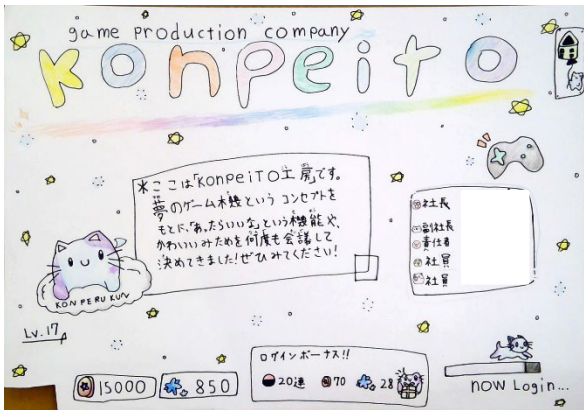 game production company
konpeito
＊ここは「KonpeiTO工房」です。
夢のゲーム機というコンセプトを
もとに、「あったらいいな」という機能や、
かわいいみためを何度も会議して
決めてきました!ぜひみてください!
社長
副社長
責任者
社員
社員
KONPERU KUN
Lv.17
15000
850
ログインボーナス!!
20連
70
28
NOW Login...